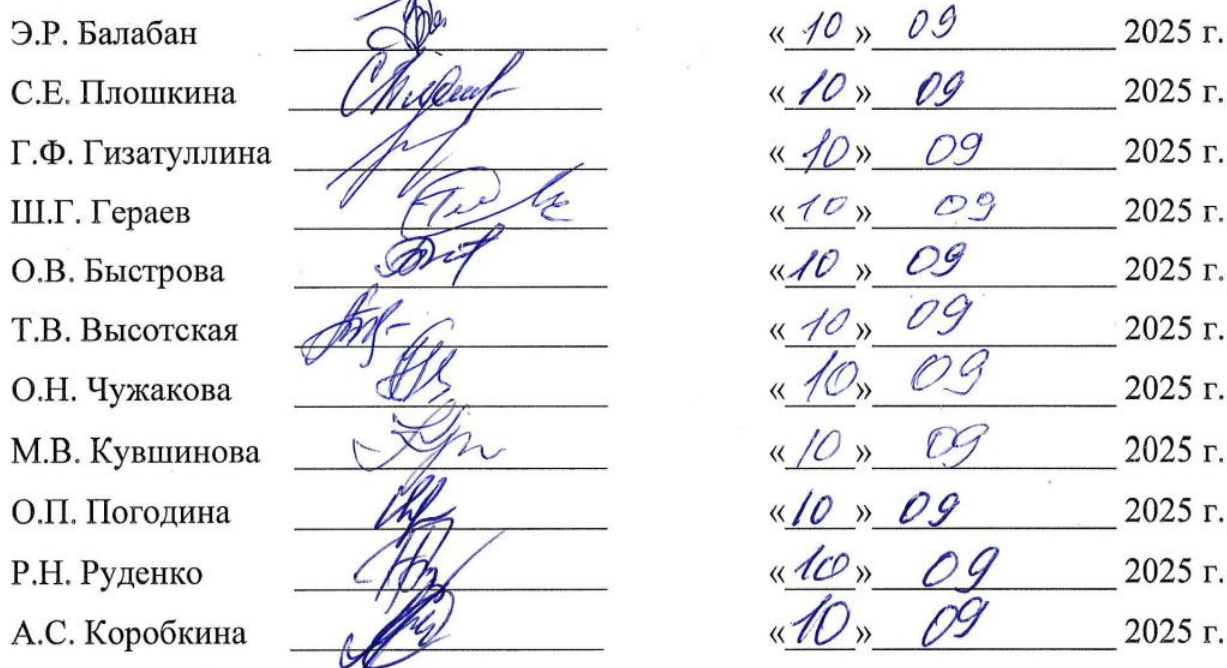 Э.Р. Балабан «10» 09 2025 г.
С.Е. Плошкина «10» 09 2025 г.
Г.Ф. Гизатуллина «10» 09 2025 г.
Ш.Г. Гераев «10» 09 2025 г.
О.В. Быстрова «10» 09 2025 г.
Т.В. Высотская «10» 09 2025 г.
О.Н. Чужакова «10» 09 2025 г.
М.В. Кувшинова «10» 09 2025 г.
О.П. Погодина «10» 09 2025 г.
Р.Н. Руденко «10» 09 2025 г.
А.С. Коробкина «10» 09 2025 г.